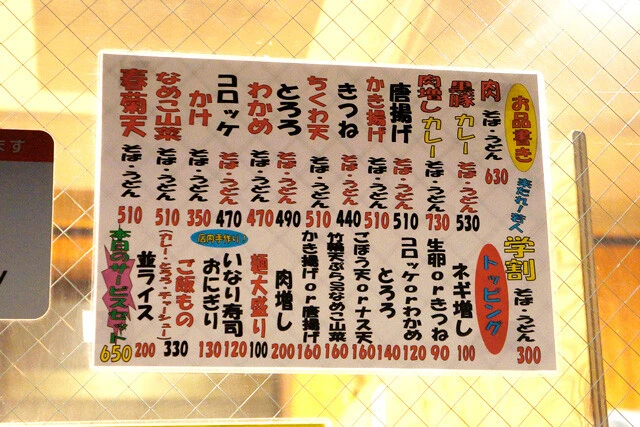 お品書き
肉 そば・うどん 630
黒豚カレー そば・うどん 530
肉増しカレー そば・うどん 730
唐揚げ そば・うどん 510
かき揚げ そば・うどん 510
きつね そば・うどん 440
ちくわ天 そば・うどん 510
とろろ そば・うどん 490
わかめ そば・うどん 470
コロッケ そば・うどん 470
かけ そば・うどん 350
なめこ山菜 そば・うどん 510
春菊天 そば・うどん 510
学割 そば・うどん 300
トッピング
ネギ増し 100
生卵orきつね 90
コロッケorわかめ 120
とろろ 140
ごぼう天orナス天 160
竹輪天ぷらorなめこ山菜 160
かき揚げor唐揚げ 160
肉増し 200
麺大盛り 100
店内手作り
いなり寿司 120
おにぎり 130
ご飯もの
(カレー・とろろ・チャーシュー) 330
並ライス 200
本日のサービスセット 650
ます